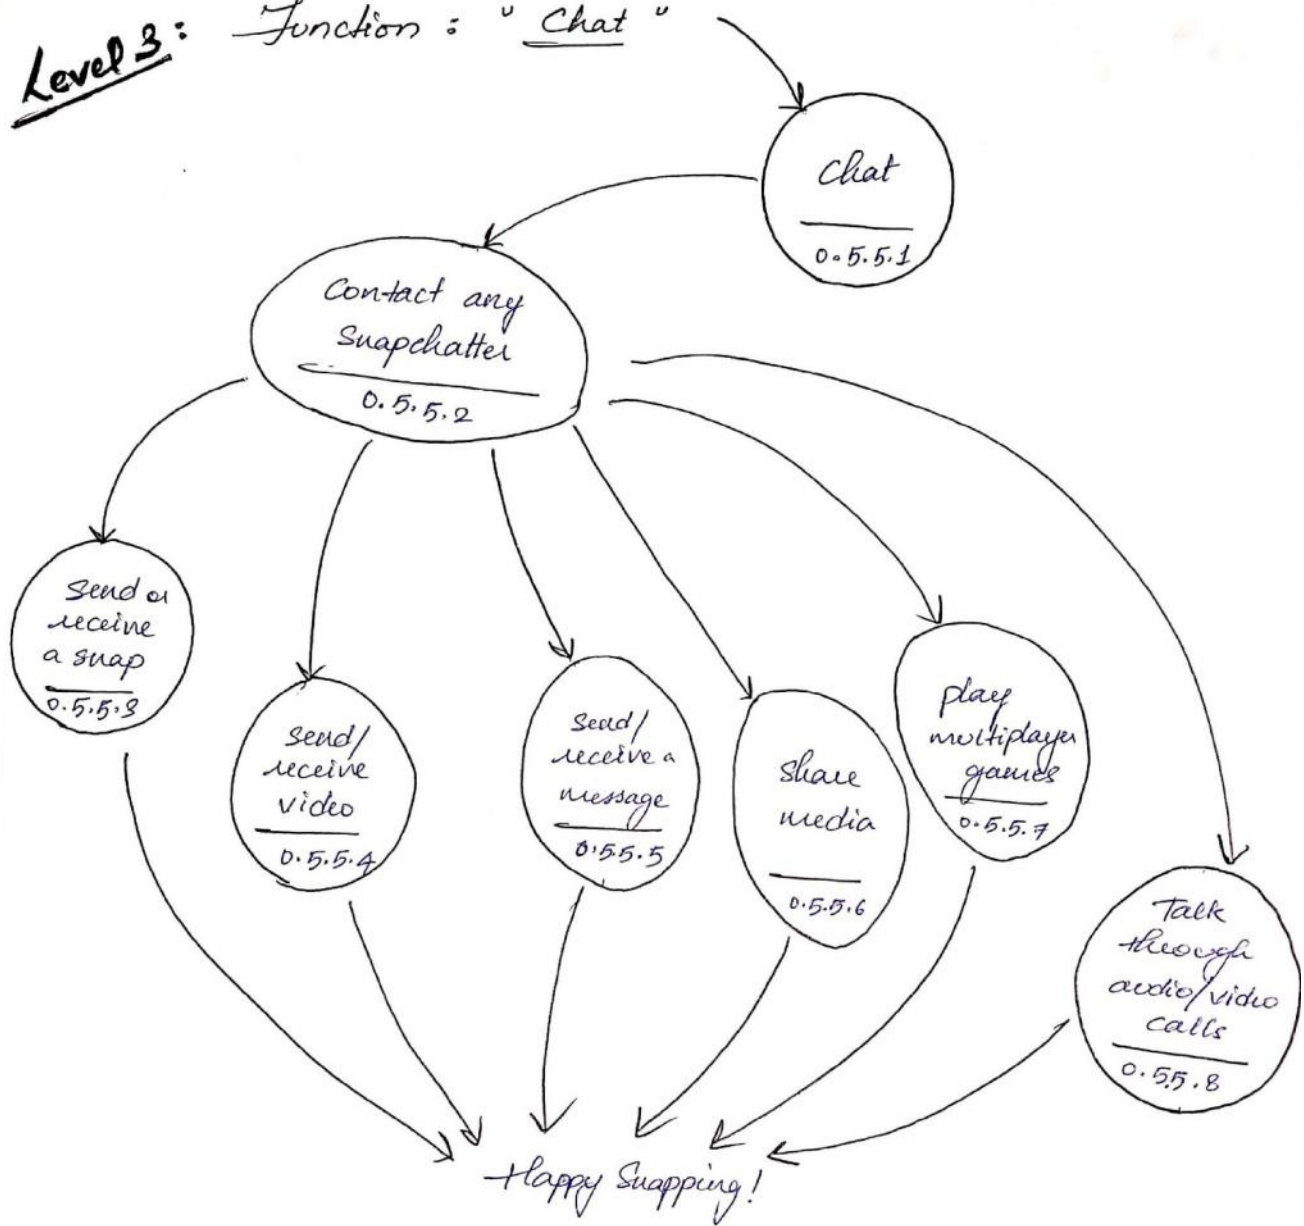 Level 3: Function : " Chat "
Chat
0.5.5.1
Contact any
Snapchatter
0.5.5.2
Send or
receive
a snap
0.5.5.3
Send/
receive
video
0.5.5.4
Send/
receive a
message
0.5.5.5
Share
media
0.5.5.6
play
multiplayer
games
0.5.5.7
Talk
through
audio/video
calls
0.5.5.8
Happy Snapping!